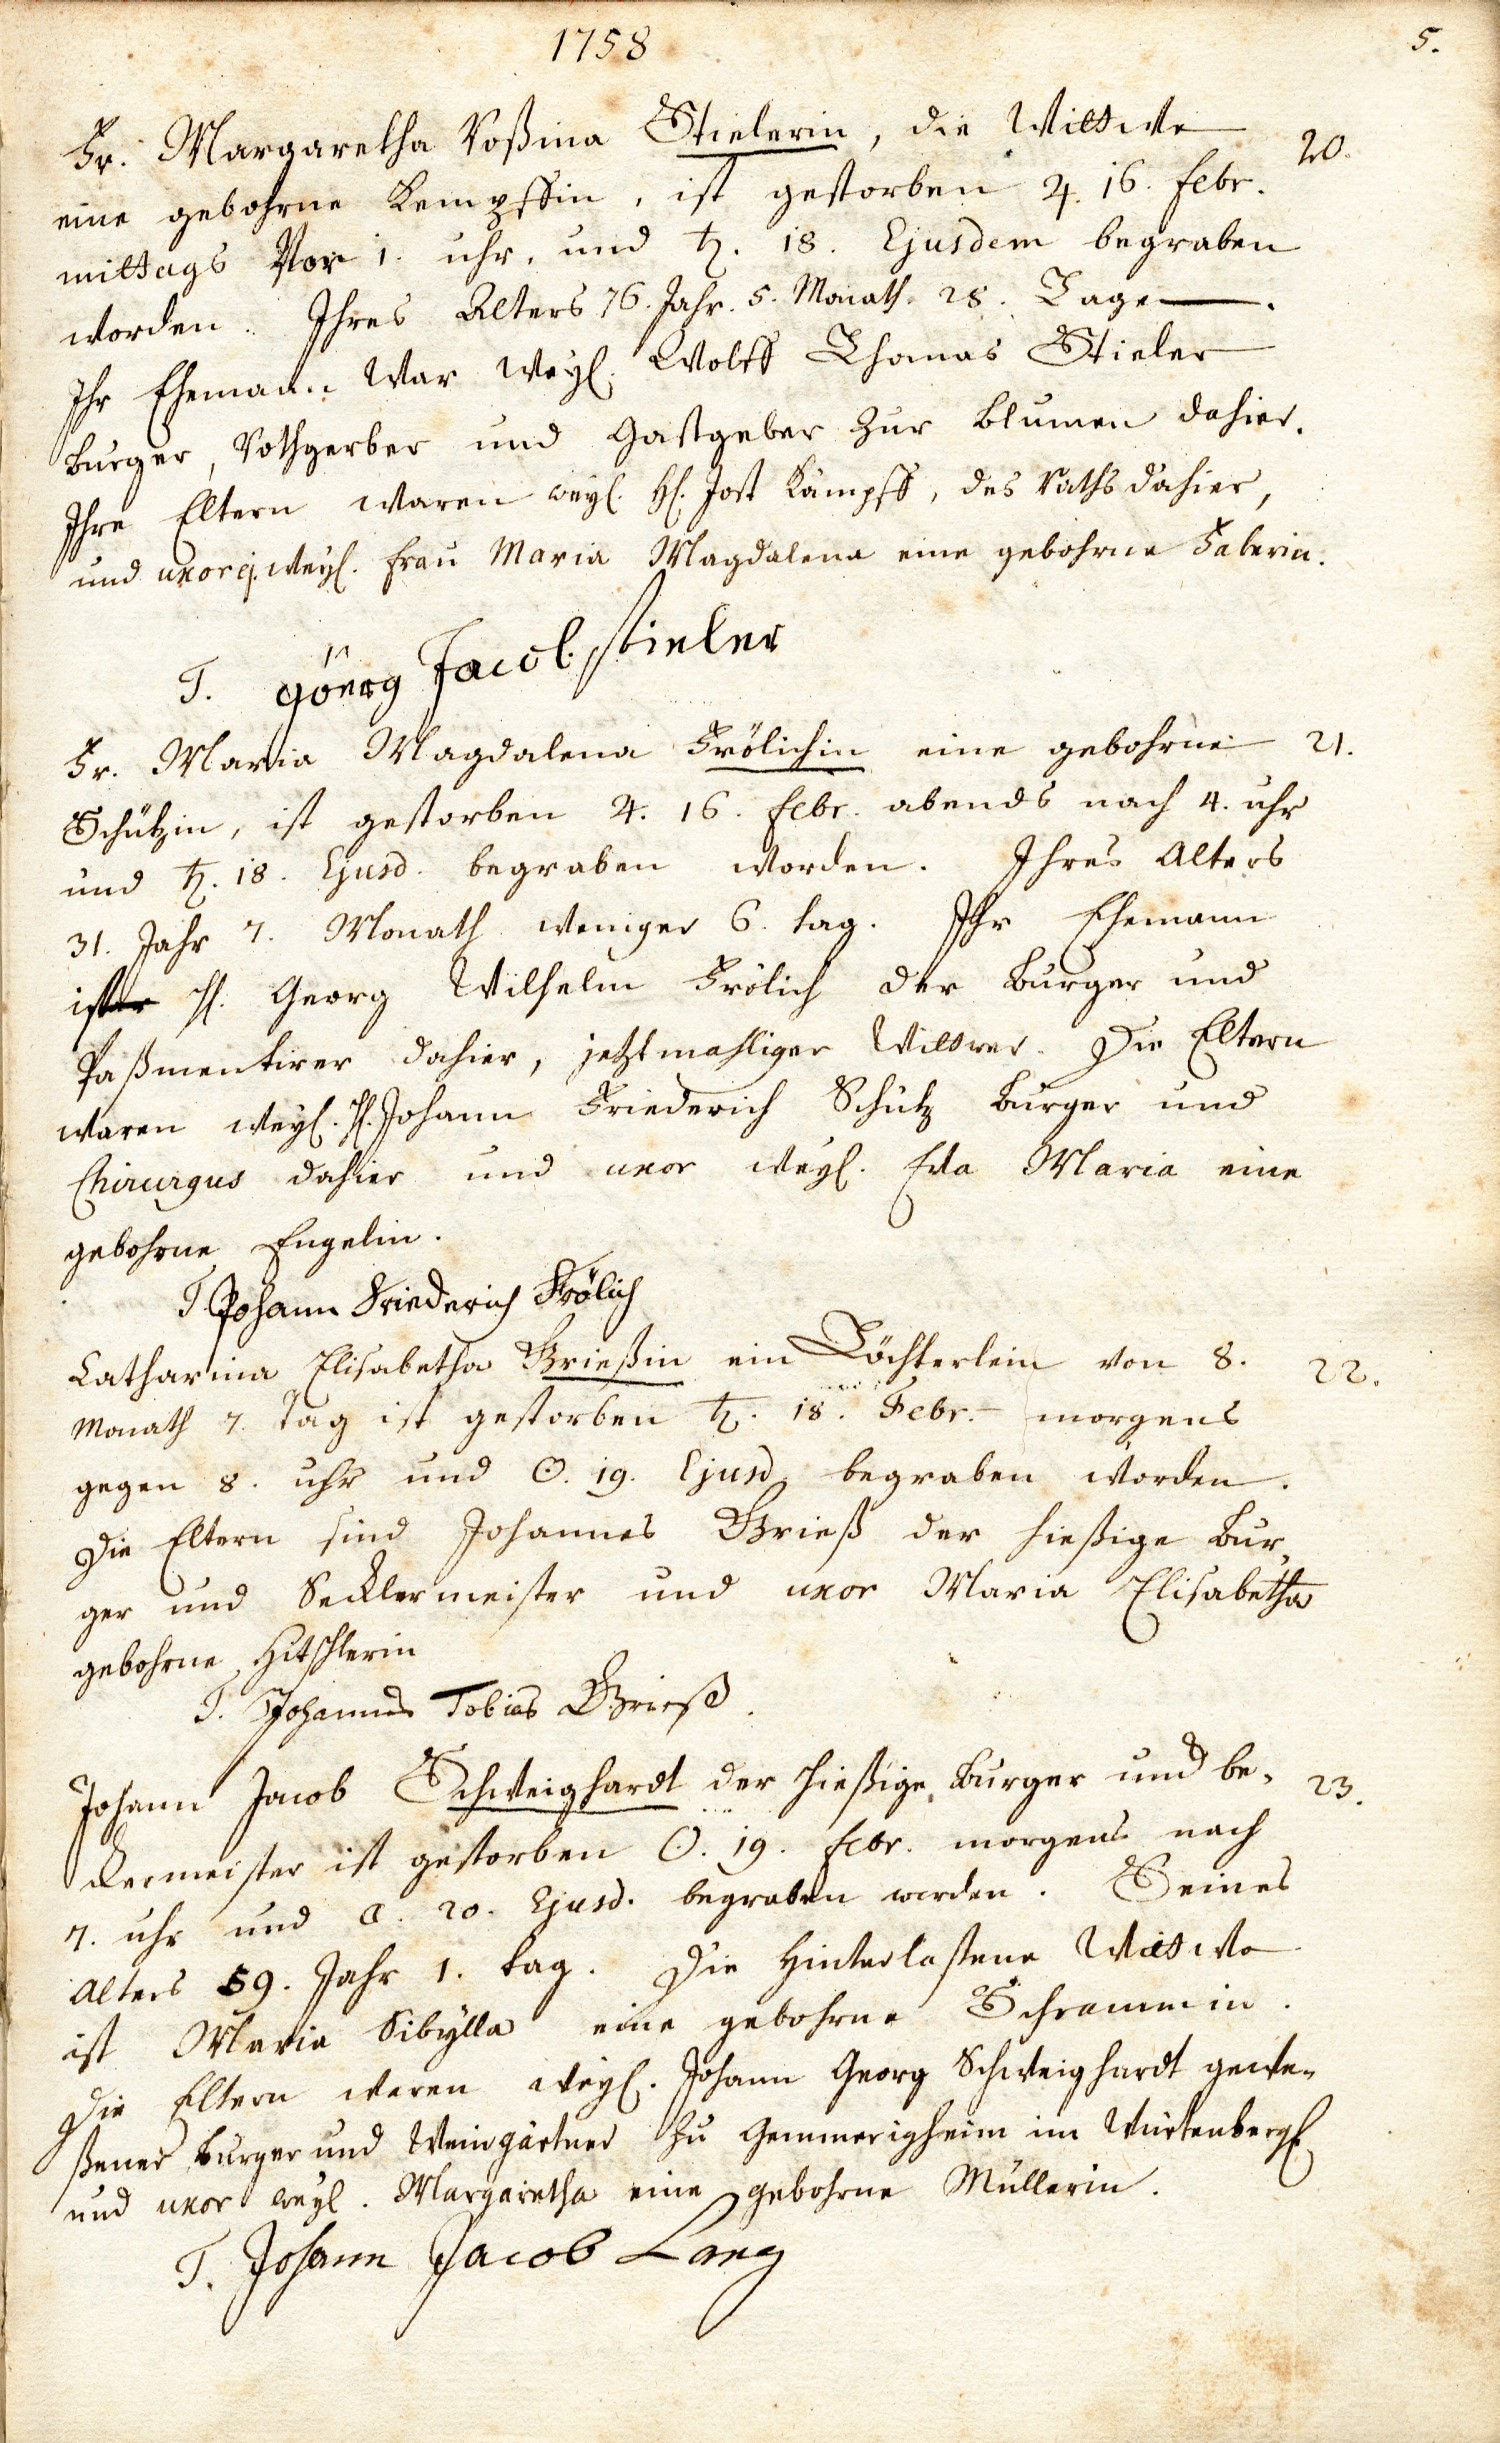 1758
5.
Fr. Margaretha Roßina Stielerin, die Wittwe
20.
eine gebohrne Kempffin, ist gestorben ♃. 16. febr.
mittags Vor 1. uhr, und ♄. 18. Ejusdem begraben
worden. Ihres Alters 76. Jahr. 5. Monath. 28. Tage.
Ihr Ehemann War weyl. Wolff Thomas Stieler
Burger, Rothgerber und Gastgeber zur Blumen dahier.
Ihre Eltern waren weyl. H. Jost Kämpff, des Raths dahier,
und uxor ej. weyl. frau Maria Magdalena eine gebohrne Faberin.
T. göerg Jacob stieler
Fr. Maria Magdalena Frölichin eine gebohrne
21.
Schützin, ist gestorben ♃. 16. febr. abends nach 4. uhr
und ♄. 18. Ejusd. begraben worden. Ihres Alters
31. Jahr 7. Monath weniger 6. tag. Ihr Ehemann
ist H. Georg Wilhelm Frölich der Burger und
Paßmentirer dahier, jetztmahliger Wittwer. Die Eltern
waren weyl. H. Johann Friederich Schütz Burger und
Chirurgus dahier und uxor weyl. Eva Maria eine
gebohrne Engelin.
T. Johann Friederich Frölich
Catharina Elisabetha Grießin ein Töchterlein von 8.
22.
Monath 7. Tag ist gestorben ♄. 18. Febr. morgens
gegen 8. uhr und ☉. 19. Ejusd. begraben worden.
Die Eltern sind Johannes Grieß der hießige Bur-
ger und Secklermeister und uxor Maria Elisabetha
gebohrne Hitschlerin
T. Johannes Tobias Grieß.
Johann Jacob Schweighardt der hießige Burger und be-
23.
ckermeister ist gestorben ☉. 19. febr. morgens nach
7. uhr und ☾. 20. Ejusd. begraben worden. Seines
Alters 59. Jahr 1. tag. Die Hinterlaßene Wittwe
ist Maria Sibylla eine gebohrne Schrammin.
Die Eltern waren weyl. Johann Georg Schweighardt gewe-
ßener Burger und Weingärtner zu Gemmerigheim im Würtenbergl.
und uxor weyl. Margaretha eine gebohrne Müllerin.
T. Johann Jacob Lang